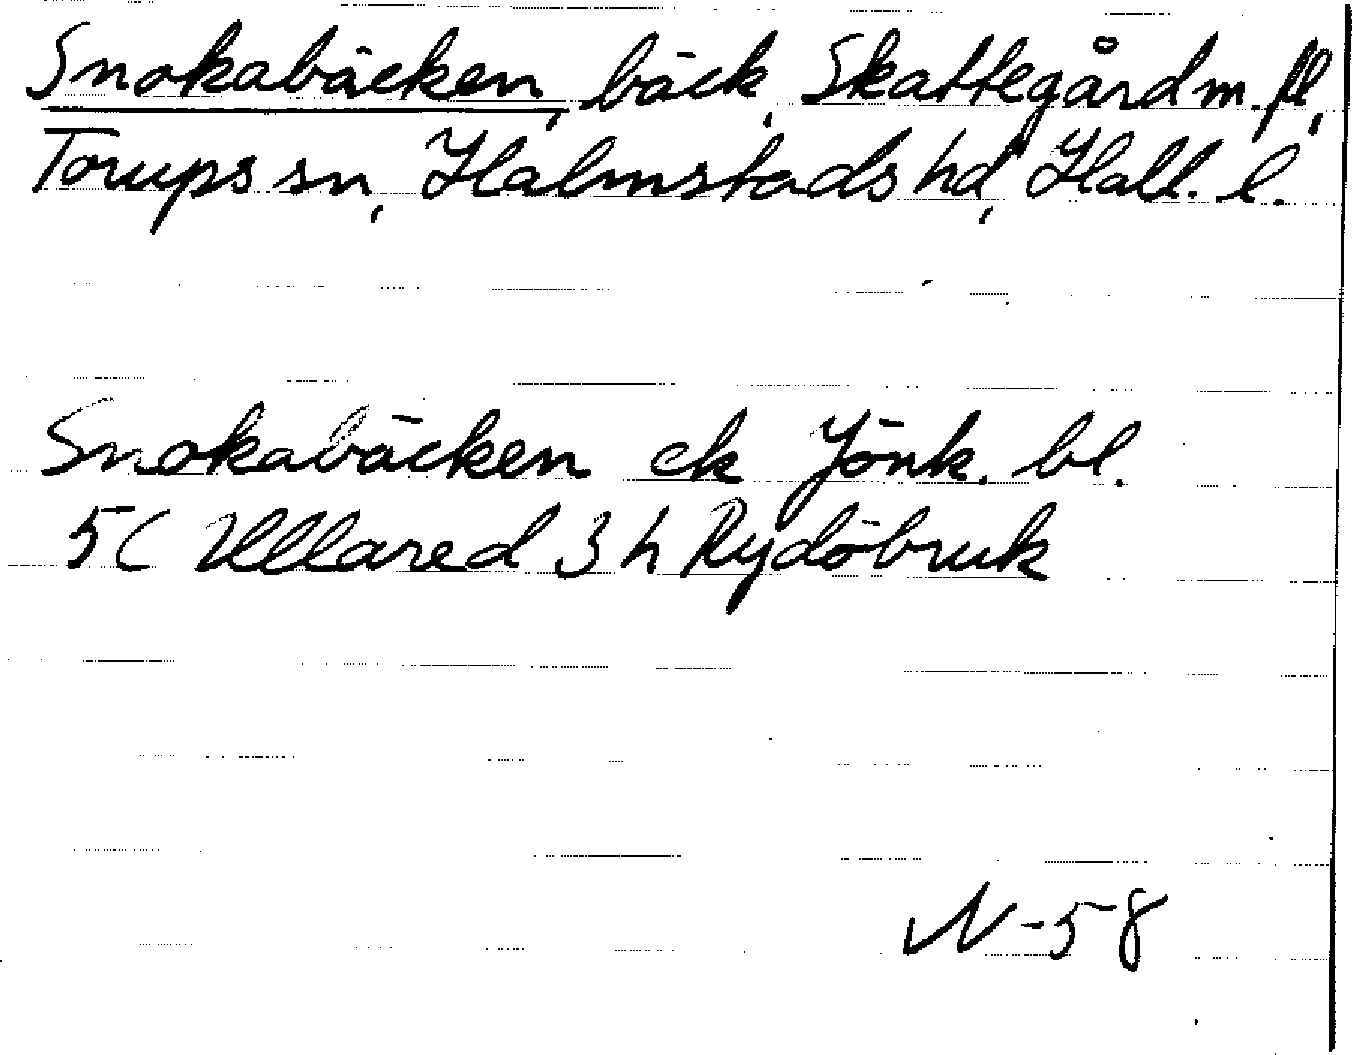 Snokabäcken, bäck, Skattegård m. fl,
Torups sn, Halmstads hd, Hall. l.
Snokabäcken ek Jönk. bl.
5C Ullared 3 h Rydöbruk
N-58